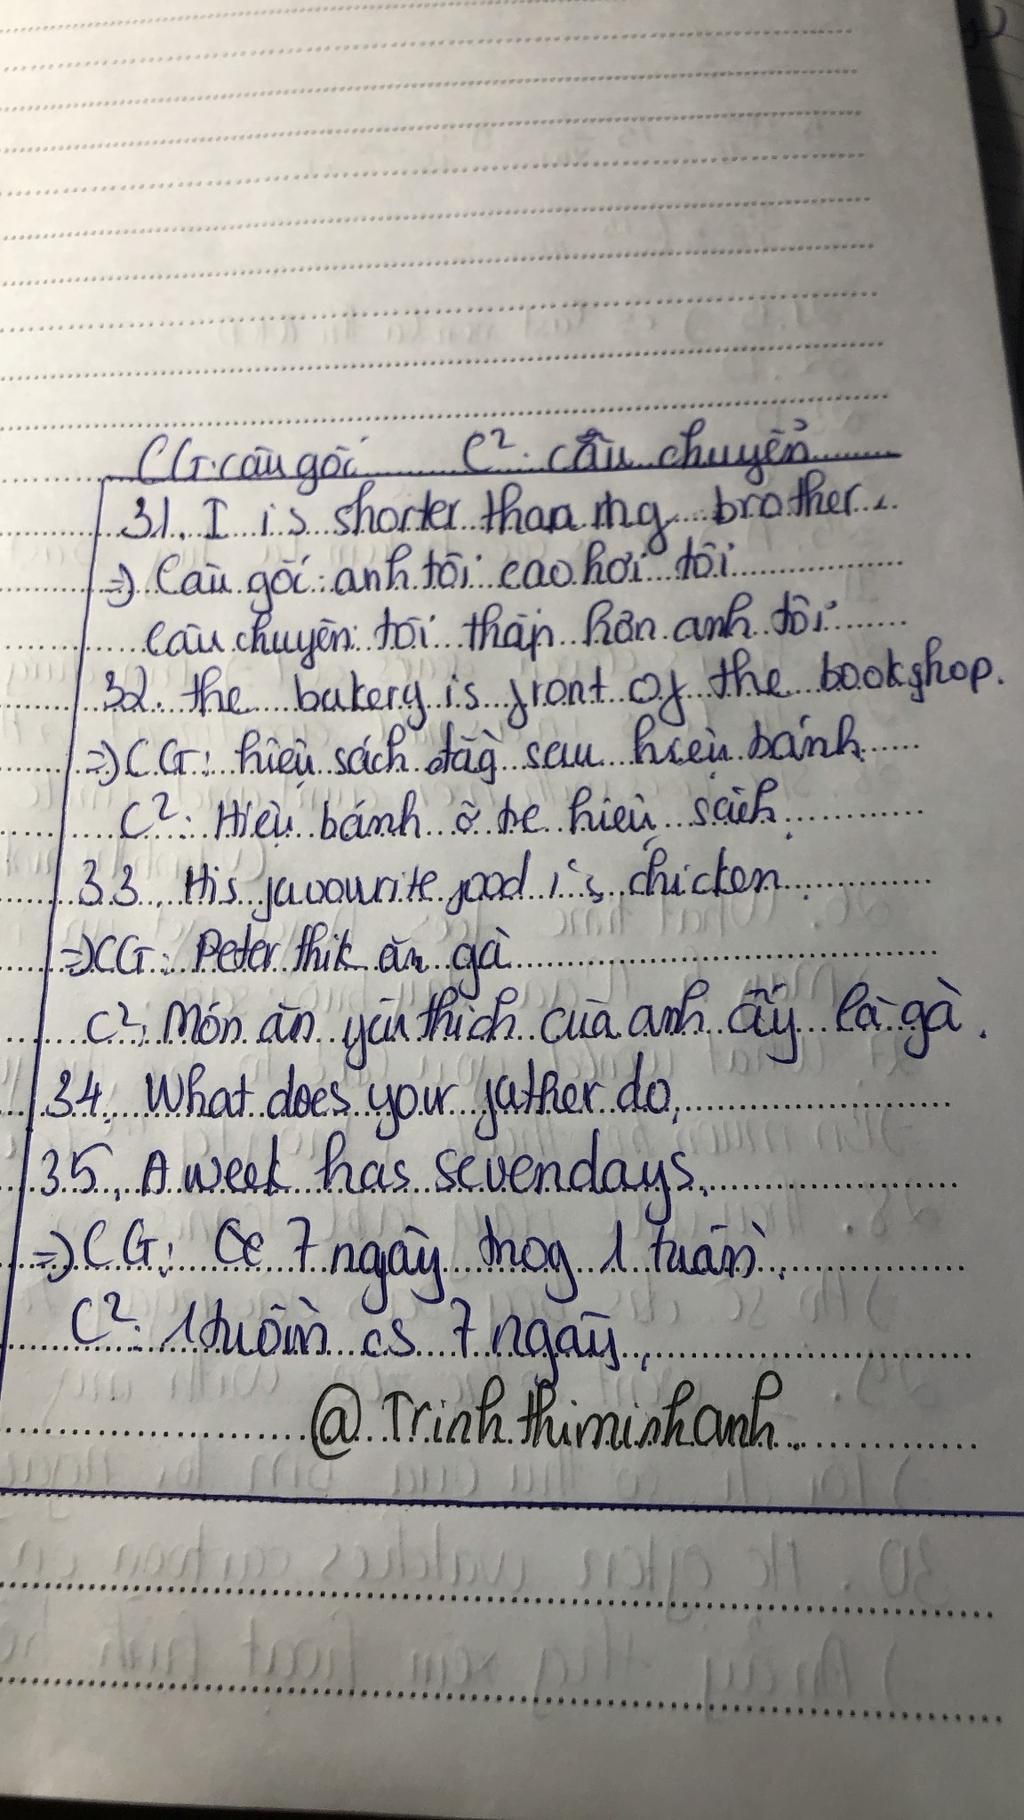 CG: câu gốc C²: câu chuyển
31. I is shorter than my brother.
=) Câu gốc: anh tôi cao hơi tôi
Câu chuyên: tôi thấp hơn anh tôi
32. the bakery is front of the bookshop.
=) CG: hiệu sách đằg sau hiệu bánh
C²: Hiệu bánh ở tre hiệu sách.
33. His favourite food is chicken.
=) CG: Peter thik ăn gà
C²: Món ăn yêu thích của anh ấy là gà.
34. What does your father do.
35. A week has sevendays.
=) CG: Cc 7 ngày trog 1 tuần.
C²: 1 tuồn cs 7 ngày.
@Trinh thiminhanh